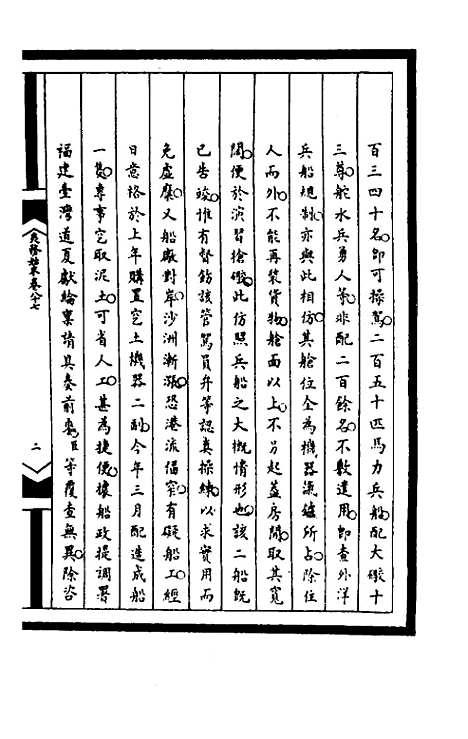 百三四十名。卽可操駕。二百五十匹馬力兵船。配大礮十
三尊。舵水兵勇人等。非配二百餘名。不敷遣用。卽查外洋
兵船規制。亦與此相仿。其艙位全為機器㵼鑪所占。除住
人而外。不能再裝貨物。艙面以上。不另起蓋房間。取其寬
闊。便於演習槍礮。此仿照兵船之大槪情形也。該二船旣
已告竣。惟有督飭該管駕員弁等認眞操練。以求實用而
免虛糜。又船廠對岸沙洲漸漲。恐港流偪窄。有礙船工。經
日意格於上年購置空土機器二副。今年三月配造成船
一隻。專事空取泥土。可省人工。甚為捷便。據船政提調署
福建臺灣道夏獻綸稟請具奏前來。臣等覆查無異。除咨
夷務始末卷八十七
二